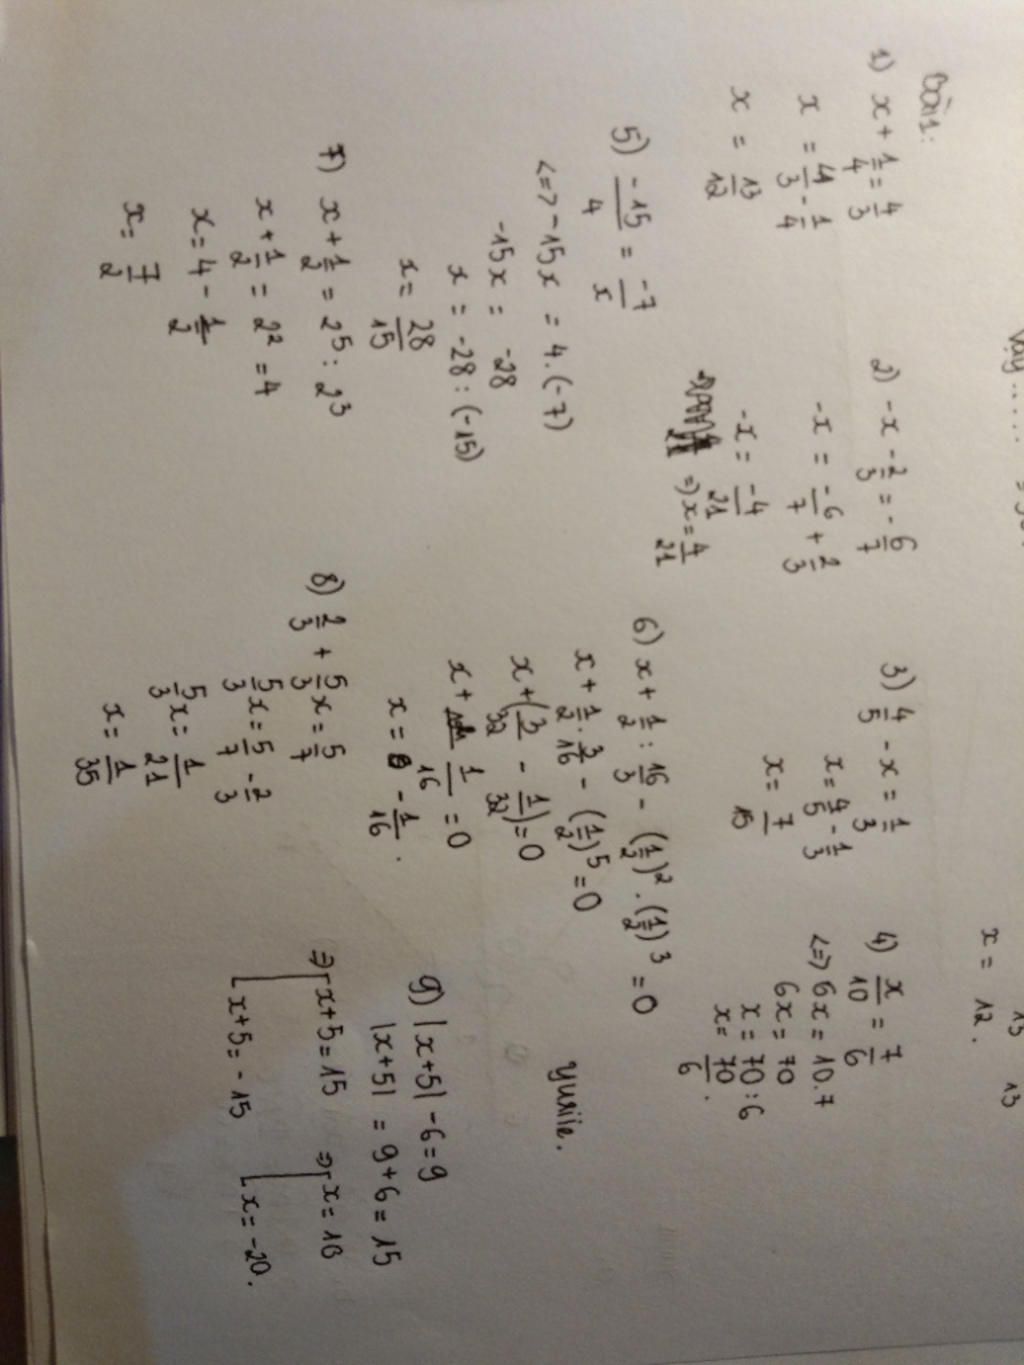 x = 12.
Bài 1:
1) x + 1/4 = 4/3
x = 4/3 - 1/4
x = 13/12
2) -x - 2/3 = -6/7
-x = -6/7 + 2/3
-x = -4/21
=> x = 4/21
3) 4/5 - x = 1/3
x = 4/5 - 1/3
x = 7/15
4) x/10 = 7/6
<=> 6x = 10.7
6x = 70
x = 70:6
x = 70/6.
5) -15/4 = -7/x
<=> -15x = 4.(-7)
-15x = -28
x = -28:(-15)
x = 28/15
6) x + 1/2 : 16/3 - (1/2)² . (1/2)³ = 0
x + 1/2 . 3/16 - (1/2)⁵ = 0
x + (3/32 - 1/32) = 0
x + 1/16 = 0
x = -1/16.
yuriie.
7) x + 1/2 = 2⁵ : 2³
x + 1/2 = 2² = 4
x = 4 - 1/2
x = 7/2
8) 2/3 + 5/3 x = 5/7
5/3 x = 5/7 - 2/3
5/3 x = 1/21
x = 1/35
9) |x+5| - 6 = 9
|x+5| = 9+6 = 15
=> [ x+5 = 15 => [ x = 10
[ x+5 = -15 [ x = -20.